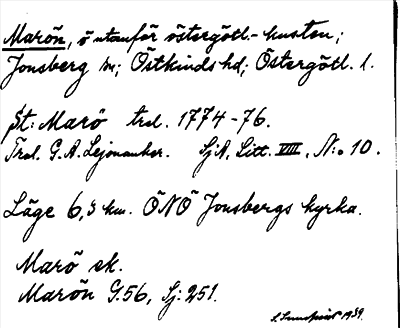 Marön, ö utanför östergötl.-kusten;
Jonsberg sn; Östkinds hd; Östergötl. l.
St: Marö trol. 1774-76.
Trol. G. A. Lejonanker. SjA, Litt. VIII, N:o 10.
Läge 6,3 km. ÖNÖ Jonsbergs kyrka.
Marö ek.
Marön G.56, Sj: 251.
S. Sundqvist 1939.